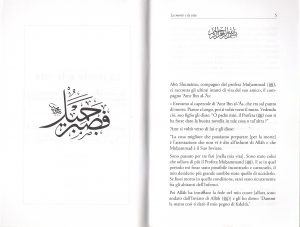 فصبر جميل
La morte e la vita
5
Abû Shumâsa, compagno del profeta Muḥammad (ﷺ),
ci racconta gli ultimi istanti di vita del suo amico, il com-
pagno 'Amr Ibn al-'Âṣ.
« Eravamo al capezzale di 'Amr Ibn al-'Âṣ, che era sul punto
di morire. Pianse molto, voltò il suo viso verso il muro. Vedendo
ciò, suo figlio gli disse: "O padre mio, il Profeta (ﷺ) non ti
ha forse dato la buona novella, in tale cosa e tal'altra ?"
'Amr si voltò verso di lui e gli disse:
"La cosa migliore che possiamo preparare [per la morte]
è l'attestazione che non vi è altra divinità all'infuori di Allah e che
Muḥammad è il Suo Inviato.
Sono passato per tre fasi [nella mia vita]. Sono stato colui
che odiava di più il Profeta Muḥammad (ﷺ), e se in quel
periodo mi fosse stato possibile incontrarlo e ucciderlo, il
mio desiderio più grande sarebbe stato quello di ucciderlo.
Se fossi morto in quelle condizioni, sarei stato sicuramente
fra gli abitanti dell'Inferno.
Poi Allah ha immesso la fede nel mio cuore [allora] sono
andato dall'Inviato di Allah (ﷺ) e gli ho detto: "Dammi
la mano così ti darò il mio pegno di fedeltà."